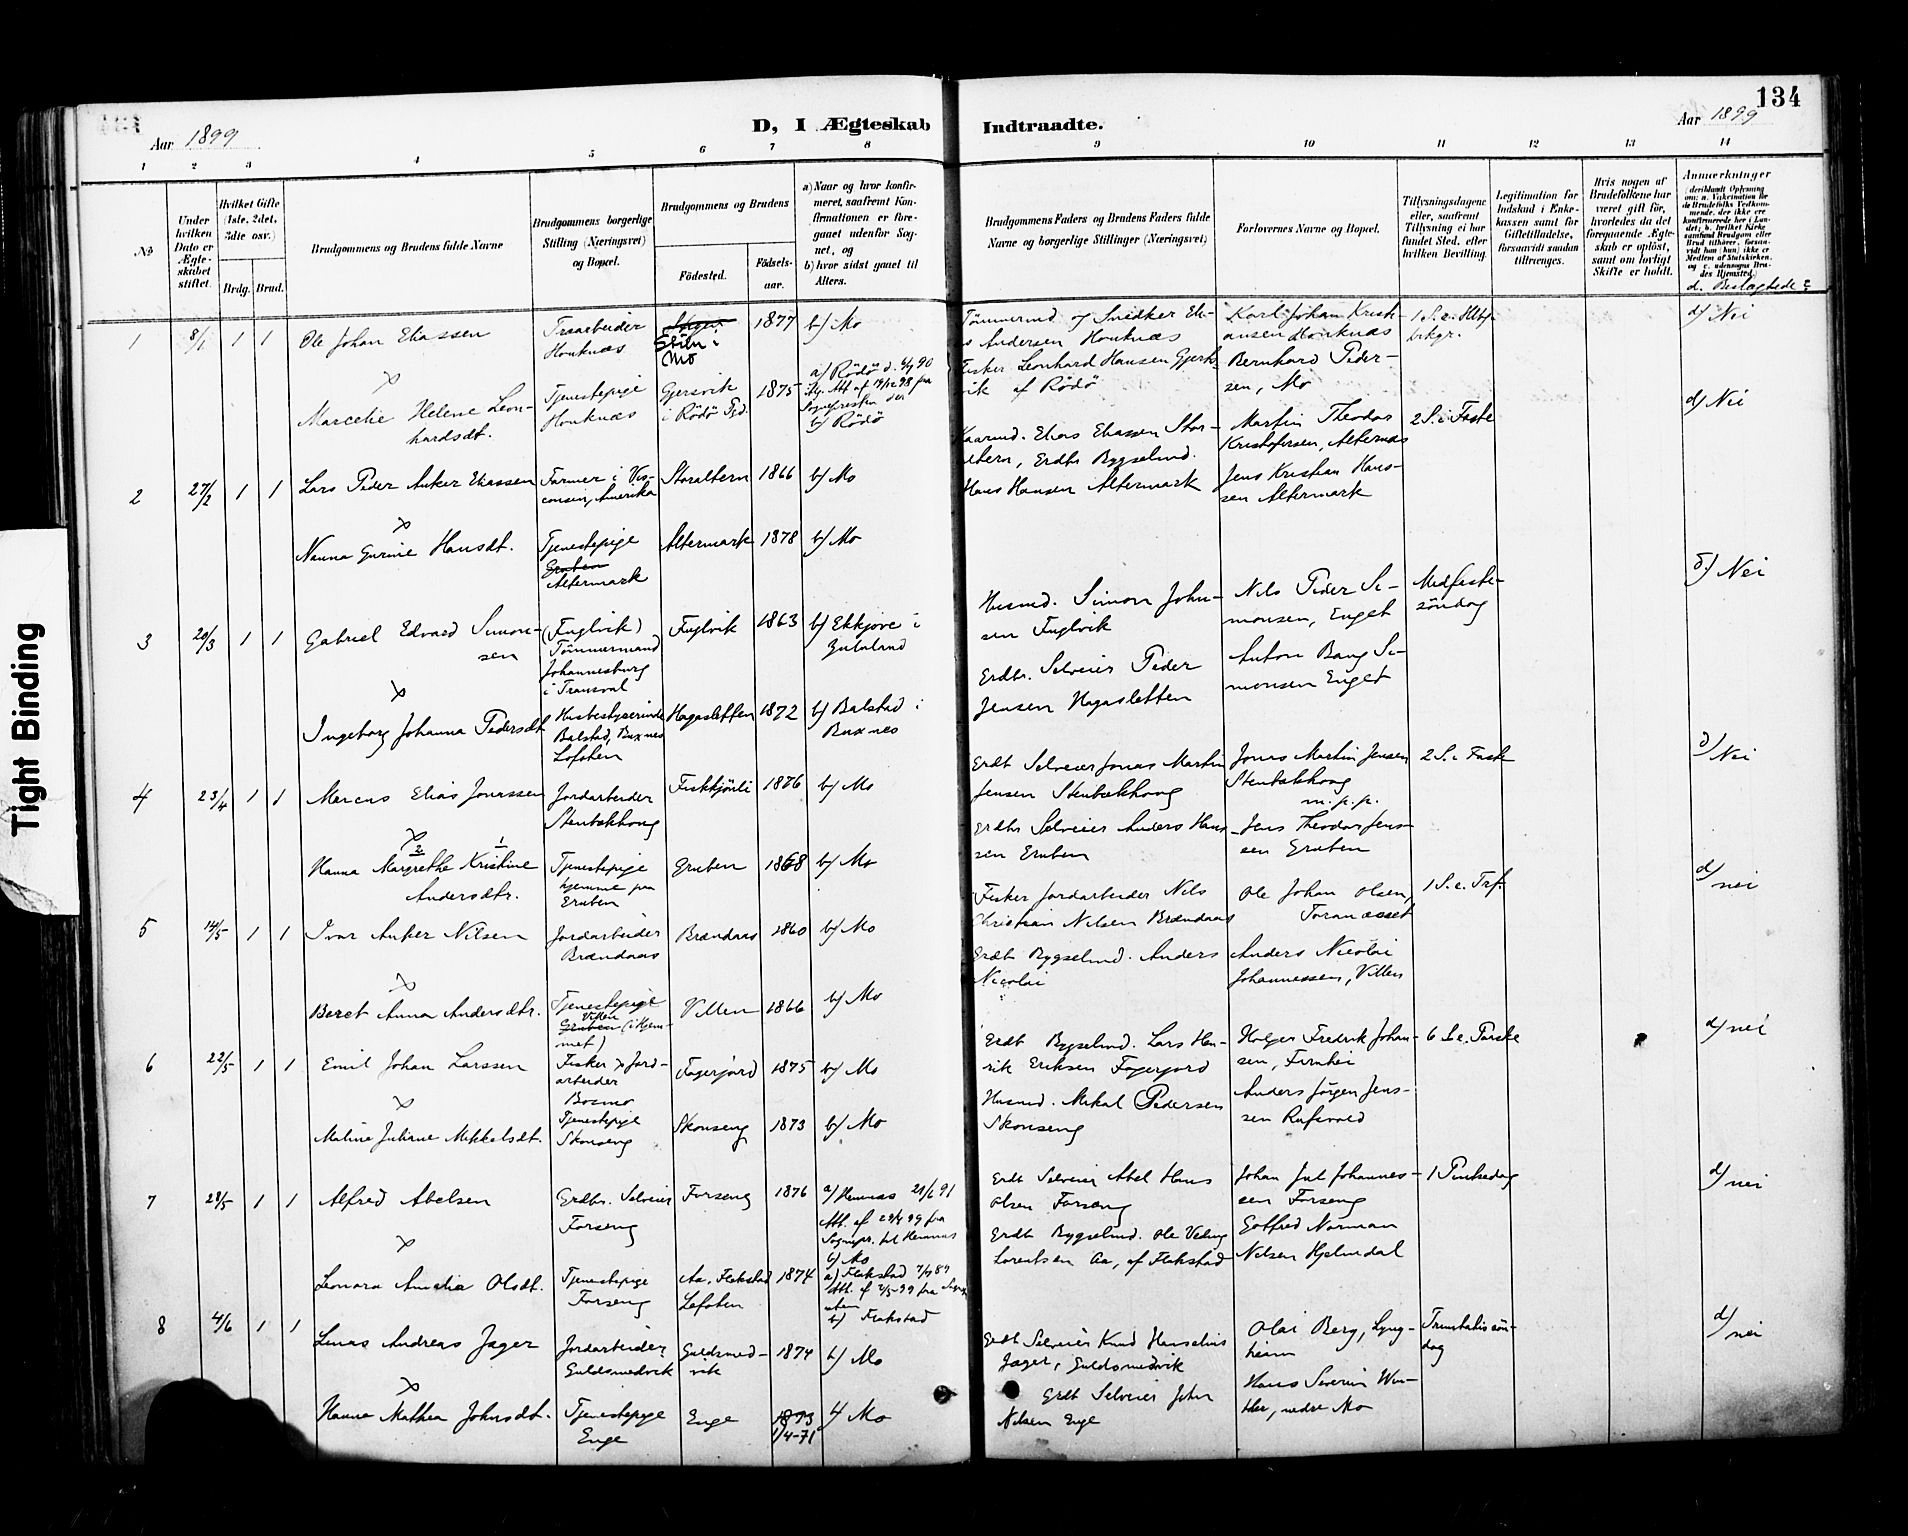 134
Aar 1899
D, I Ægteskab Indtraadte.
Aar 1899
1 2 3 4 5 6 7 8 9 10 11 12 13 14
No
Under hvilken Dato er Ægteskabet stiftet.
Hvilket Gifte (1ste, 2det, 3die osv.)
Brdg. Brud.
Brudgommens og Brudens fulde Navne
Brudgommens borgerlige Stilling (Næringsvei) og Bopæl.
Brudgommens og Brudens
Födested.
Födselsaar.
a) Naar og hvor konfirmeret, saafremt Konfirmationen er foregaaet udenfor Sognet, og
b) hvor sidst gaaet til Alters.
Brudgommens Faders og Brudens Faders fulde Navne og borgerlige Stillinger (Næringsvei)
Forlovernes Navne og Bopæl.
Tillysningsdagene eller, saafremt Tillysning ei har fundet Sted, efter hvilken Bevilling.
Legitimation for Indskud i Enkekassen samt for Giftetilladelse, forsaavidt saadan tiltrænges.
Hvis nogen af Brudefolkene har været gift før, hvorledes da det foregaaende Ægteskab er opløst, samt om lovligt Skifte er holdt.
Anmærkninger
d. Beslægtede?
1 8/1 1 1 Ole Johan Eliassen
Træarbeider
Houknæs
Mo
1877
b/ Mo
Tömmermd. og Snedker Eli-
s Andersen Houknæs
Karl Johan Krist-
ansen Houknæs
d/ Nei
x
Marcelie Helene Leon-
hardsdt.
Tjenestepige
Houknæs
Gjersvik
i Rödö
1875
a) Rödö
b) Rödö
Fisker Leonhard Hansen Gjers-
vik af Rödö
Bernhard Peder-
sen, Mo
2 27/2 1 1 Lars Peder Anker Eliassen
Farmer i Vis-
consin, Amerika
Storaltern
1866
b/ Mo
Elias Eliassen Stor-
altern, Erdbr Bygselmd.
Martin Theodor
Kristofersen, Alternæs
2 S. i Faste
d/ Nei
x
Nanna Gurine Hansdt.
Tjenestepige
Altermark
Altermark
1878
b/ Mo
Hans Hansen Altermark
Jens Kristian Han-
sen Altermark
3 20/3 1 1 Gabriel Edvard Simon-
sen
(Fuglvik)
Tömmermand
Johannesburg
i Transval
Fuglvik
1863
b/ Ekkjöve i
Zululand
Husmd. Simon John-
sen Fuglvik
Nils Peder Si-
monsen, Enget
Midfaste-
söndag
d/ Nei
x
Ingeborg Johanna Pedersdt
Husbestyrerinde
Balstad, Buxnes
Lofoten
Hagasletten
1872
b/ Balstad i
Buxnes
Erdbr. Selveier Peder
Jensen Hagasletten
Anton Bang Si-
monsen Enget
4 23/4 1 1 Marcus Elias Jonassen
Jordarbeider
Stenbækhaug
Fiskkjönli
1876
b/ Mo
Erdb Selveier Jonas Martin
Jensen Stenbækhaug
Jonas Martin Jensen
Stenbækhaug
m.p.p.
2 S. e Paaske
d/ Nei
x
2 1
Hanna Margrethe Kristine
Andersdtr.
Tjenestepige
hjemme paa
Gruben
Gruben
1868
b/ Mo
Erdbr Selveier Anders Han-
sen Gruben
Jens Theodor Jens-
sen Gruben
5 14/5 1 1 Ivar Anker Nilsen
Jordarbeider
Brændaas
Brændaas
1860
b/ Mo
Fisker Jordarbeider Nils
Christian Nilsen Brændaas
Ole Johan Olsen,
Toranæsset
d/ nei
x
Beret Anna Andersdtr.
Tjenestepige
Villen
Gruben (i Hjem-
met)
Villen
1866
b/ Mo
Erdb Bygselmd. Anders
Nicolai
Anders Nicolai
Johannessen, Villen
6 22/5 1 1 Emil Johan Larssen
Fisker & Jord-
arbeider
Bosmo
Fagerjord
1875
b/ Mo
Erdb Bygselmd. Lars Hen-
rik Eriksen Fagerjord
Holger Fredrik Johan-
sen, Furuhei
d/ nei
x
Maline Juliane Mikkelsdt.
Tjenestepige
Skonseng
Skonseng
1873
b/ Mo
Husmd. Mikal Pedersen
Skonseng
Anders Jörgen Jens-
sen Rufsvold
7 28/5 1 1 Alfred Abelsen
Erdbr. Selveier
Forseng
Forseng
1876
a) Hemnæs 21/6 91
b) Mo
Erdb Selveier Abel Hans
Olsen Forseng
Johan Juel Johannes-
sen Forseng
1 Pintsedag
d/ nei
x
Leonora Amalia Olsdt.
Tjenestepige
Forseng
Aa, Flakstad
Lofoten
1874
a) Flakstad
b) Flakstad
Erdb Bygselmd. Ole Veding
Lorentsen Aa, af Flakstad
Gotfred Norman
Nilsen Hjelmedal
8 4/6 1 1 Linas Andreas Jager
Jordarbeider
Guldsmedvik
Guldsmed-
vik
1874
b/ Mo
Erdb Selveier Knud Hanselius
Jager, Guldsmedvik
Olai Berg, Lyng-
heim
Trinitatissön-
dag
d/ nei
x
Hanna Mathea Johnsdt.
Tjenestepige
Enge
Enge
1873
1/4-71
b/ Mo
Erdb Selveier John
Nilsen Enge
Hans Severin Win-
ther, nedre Mo
Tight Binding